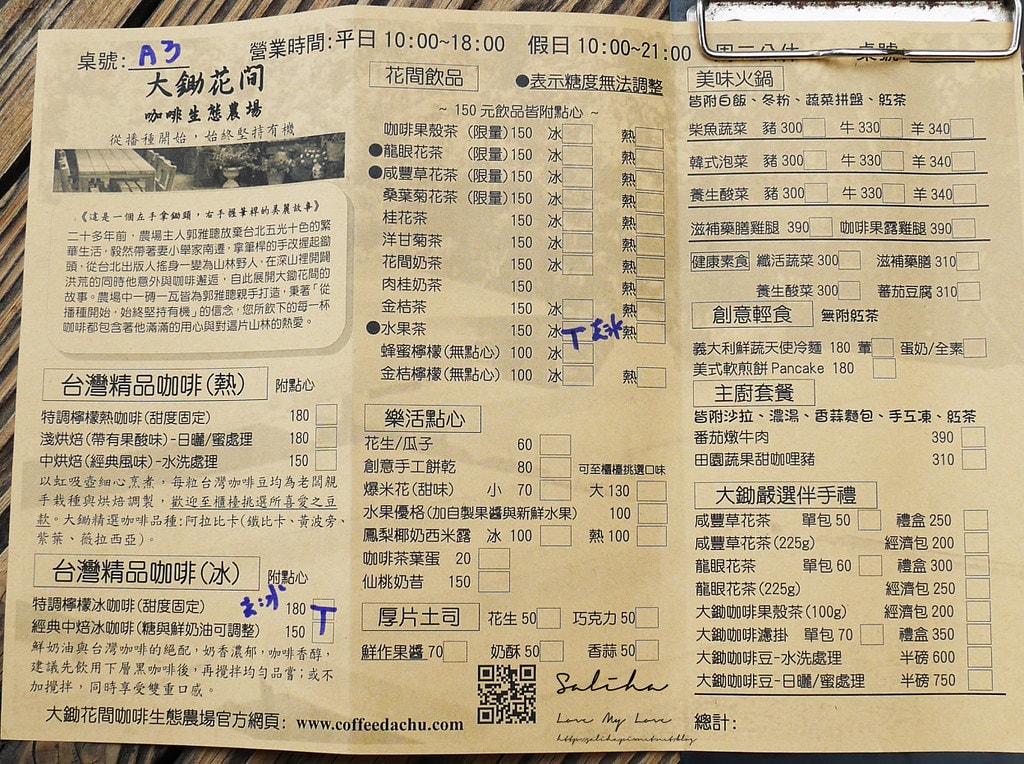 桌號: A3
營業時間:平日 10:00~18:00 假日 10:00~21:00
大鋤花间
咖啡生態農場
從播種開始,始終堅持有機
《這是一個左手拿鋤頭,右手握筆桿的美麗故事》
二十多年前,農場主人郭雅聰放棄台北五光十色的繁
華生活,毅然帶著妻小舉家南遷,拿筆桿的手改握起鋤
頭,從台北出版人搖身一變為山林野人,在深山裡開闢
洪荒的同時他意外與咖啡邂逅,自此展開大鋤花間的
故事。農場中一磚一瓦皆為郭雅聰親手打造,秉著「從
播種開始,始終堅持有機」的信念,您所飲下的每一杯
咖啡都包含著他滿滿的用心與對這片山林的熱愛。
台灣精品咖啡(熱) 附點心
特調檸檬熱咖啡(甜度固定) 180
淺烘焙(帶有果酸味)-日曬/蜜處理 180
中烘焙(經典風味)-水洗處理 150
以虹吸壺細心烹煮,每粒台灣咖啡豆均為老闆親
手栽種與烘焙調製,歡迎至櫃檯挑選所喜愛之豆
款。大鋤精選咖啡品種:阿拉比卡(鐵比卡、黃波旁、
紫葉、薇拉西亞)。
台灣精品咖啡(冰) 附點心
特調檸檬冰咖啡(甜度固定) 去冰 180 T
經典中焙冰咖啡(糖與鮮奶油可調整) 150
鮮奶油與台灣咖啡的絕配,奶香濃郁,咖啡香醇,
建議先飲用下層黑咖啡後,再攪拌均勻品嘗;或不
加攪拌,同時享受雙重口感。
大鋤花間咖啡生態農場官方網頁: www.coffeedachu.com
花間飲品 ●表示糖度無法調整
~ 150 元飲品皆附點心 ~
咖啡果殼茶 (限量) 150 冰 熱
●龍眼花茶 (限量) 150 冰 熱
●咸豐草花茶 (限量) 150 冰 熱
桑葉菊花茶 (限量) 150 冰 熱
桂花茶 150 冰 熱
洋甘菊茶 150 冰 熱
花間奶茶 150 冰 熱
肉桂奶茶 150 熱
金桔茶 150 冰 熱
●水果茶 150 冰 T 去冰 熱
蜂蜜檸檬(無點心) 100 冰
金桔檸檬(無點心) 100 冰 熱
樂活點心
花生/瓜子 60
創意手工餅乾 80 可至櫃檯挑選口味
爆米花(甜味) 小 70 大 130
水果優格(加自製果醬與新鮮水果) 100
鳳梨椰奶西米露 冰 100 熱 100
咖啡茶葉蛋 20
仙桃奶昔 150
厚片土司 花生 50 巧克力 50
鮮作果醬 70 奶酥 50 香蒜 50
Saliha
Love My Love
美味火鍋
皆附白飯、冬粉、蔬菜拼盤、紅茶
柴魚蔬菜 豬 300 牛 330 羊 340
韓式泡菜 豬 300 牛 330 羊 340
養生酸菜 豬 300 牛 330 羊 340
滋補藥膳雞腿 390 咖啡果露雞腿 390
健康素食 纖活蔬菜 300 滋補藥膳 310
養生酸菜 300 番茄豆腐 310
創意輕食 無附紅茶
義大利鮮蔬天使冷麵 180 葷 蛋奶/全素
美式軟煎餅 Pancake 180
主廚套餐
皆附沙拉、濃湯、香蒜麵包、手工凍、紅茶
番茄燉牛肉 390
田園蔬果甜咖哩豬 310
大鋤嚴選伴手禮
咸豐草花茶 單包 50 禮盒 250
咸豐草花茶(225g) 經濟包 200
龍眼花茶 單包 60 禮盒 300
龍眼花茶(225g) 經濟包 250
大鋤咖啡果殼茶(100g) 經濟包 200
大鋤咖啡濾掛 單包 70 禮盒 350
大鋤咖啡豆-水洗處理 半磅 600
大鋤咖啡豆-日曬/蜜處理 半磅 750
總計: